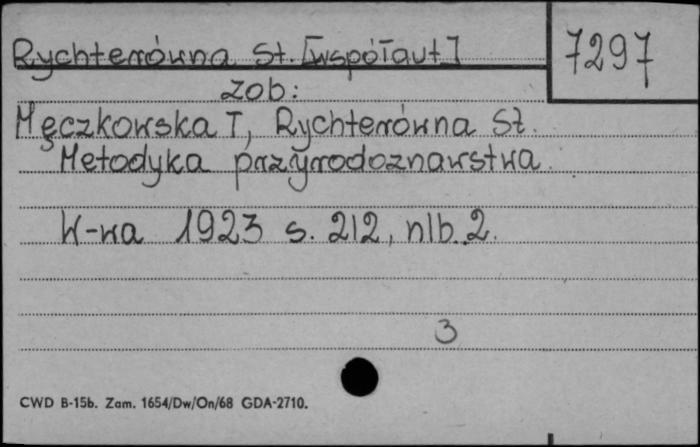 Rychterówna St. [współaut]
7297
zob:
Męczkowska T, Rychterówna St.
Metodyka przyrodoznawstwa.
W-wa 1923 s. 212, nlb. 2.
3
CWD B-15b. Zam. 1654/Dw/On/68 GDA-2710.